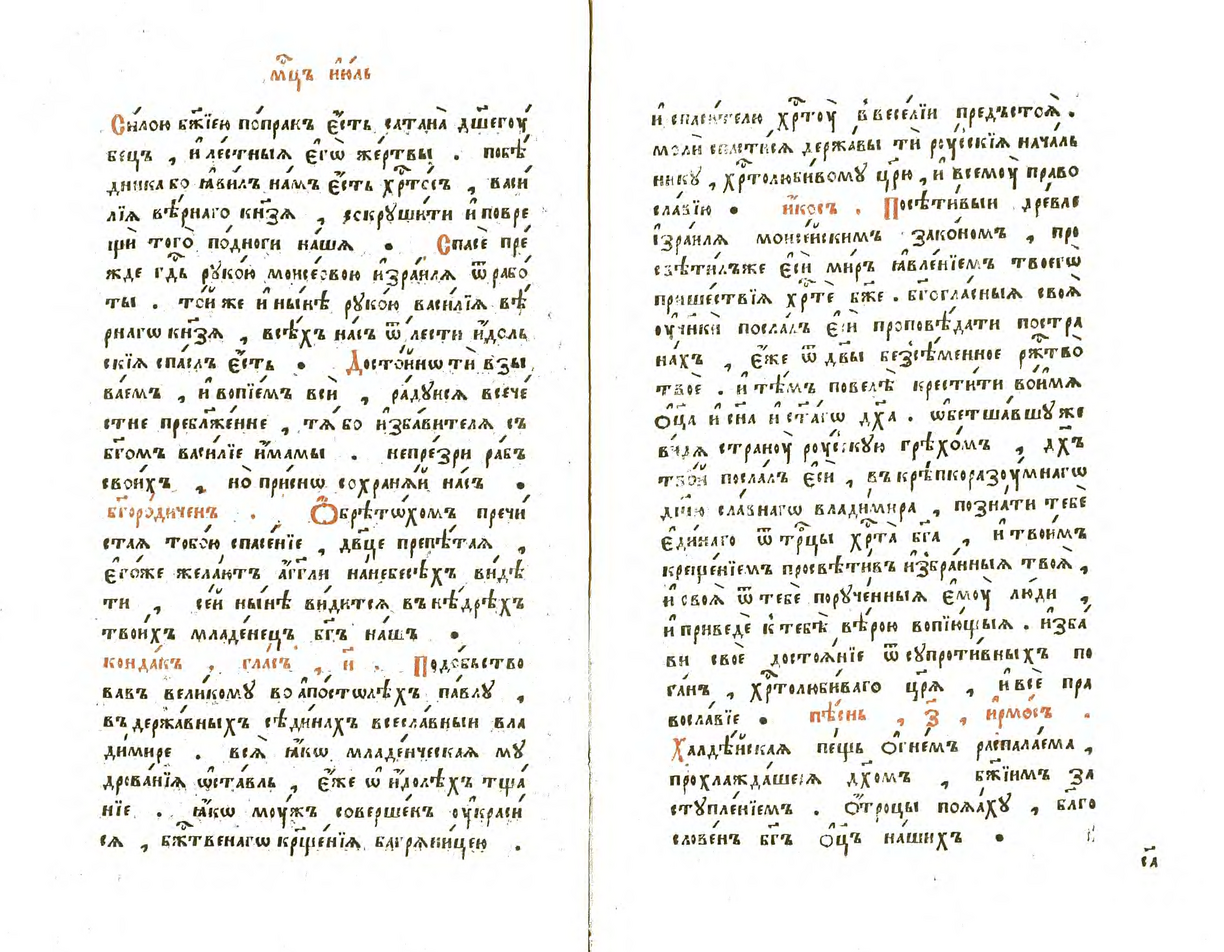 мⷭ҇цъ і҆ю́ль
Си́лою бж҃їею попра́къ є҆́сть сатана̀ дш҃егоу
бецъ , и҆ ле́стныѧ є҆гѡ̀ же́ртвы . побѣ́
дника бо ꙗ҆ви́лъ на́мъ є҆́сть хрⷭ҇то́съ , васи́
лїѧ вѣ́рнаго кнѧ́зѧ , скруши́ти и҆ повре
щѝ того̀ по́дноги на́шѧ . Спасе́ пре́
жде гдⷭ҇ь руко́ю моисе́овою и҆зра́илѧ ѿ рабо́
ты . то́йже и҆ ны́нѣ руко́ю васи́лїѧ вѣ́
рнагѡ кнѧ́зѧ , всѣ́хъ на́съ ѿ ле́сти и҆́доль
скїѧ спа́слъ є҆́сть . Досто́йнѡ ти взы
ва́емъ , и҆ вопїе́мъ всѝ , ра́дуисѧ всече
стне пребл҃же́нне , тѧ́ бо и҆зба́вителѧ съ
бг҃омъ васи́лїе и҆́мамы . непре́зри ра́бъ
свои́хъ , но̀ при́снѡ сохранѧ́й на́съ .
бг҃оро́диченъ . Ѻ҆брѣто́хомъ пречи́
стаѧ тобо́ю спасе́нїе , дв҃це препѣ́таѧ ,
є҆го́же жела́ютъ а҆́гг҃ли нанебесѣ́хъ ви́дѣ
ти , се́й ны́нѣ ви́дитсѧ въ нѣ́дрѣхъ
твои́хъ младе́нецъ бг҃ъ на́шъ .
конда́къ , гла́съ , и҃ . Подо́бьство
вавъ вели́кому во а҆по́столѣхъ па́влу ,
въ держа́вныхъ сѣди́нахъ всесла́вныи вла
ди́мире . всѧ̀ ꙗ҆́кѡ младе́нческаѧ му
дрова́нїѧ ѡ҆ста́вль , є҆́же ѡ҆ и҆́долѣхъ тща́
нїе . ꙗ҆́кѡ моу́жъ соверше́нъ оу҆краси́
сѧ , бж҃твенагѡ крщ҃е́нїѧ багрѧни́цею .
и҆ спаси́телю хрⷭ҇тоу̀ в весе́лїи предъстоѧ̀ .
молѝ спасти́сѧ держа́вы ти роу́сскїѧ нача́ль
нику , хрⷭ҇толюби́вому цр҃ю̀ , и҆ всемоу̀ право
сла́вїю . и҆́косъ . Посѣти́выи дре́вле
і҆зра́илѧ моисе́йскимъ зако́номъ , про
свѣти́лъже є҆сѝ ми́ръ ꙗ҆вле́нїемъ твоегѡ̀
прише́ствїѧ хрⷭ҇тѐ бж҃е . бг҃огла́сныѧ своѧ̀
оу҆чн҃кѝ посла́лъ є҆сѝ проповѣ́дати постра
на́хъ , є҆́же ѿ дв҃ы безсѣ́менное ржⷭ҇тво̀
твоѐ . и҆ тѣ́мъ повелѣ̀ крести́ти во и҆́мѧ
ѻц҃а̀ и҆ сн҃а и҆ ст҃а́гѡ дх҃а . ѡ҆бетша́вшу же
ви́дѧ страноу̀ роу́скую грѣхо́мъ , дх҃ъ
тво́й посла́лъ є҆сѝ , въ крѣпкоразоу́мнагѡ
дш҃ю сла́внагѡ влади́мира , позна́ти тебѐ
є҆ди́наго ѿ трⷪ҇цы хрⷭ҇та̀ бг҃а , и҆ твои́мъ
креще́нїемъ просвѣти́въ и҆збра́нныѧ твоѧ̀ ,
и҆ своѧ̀ ѿ тебѐ пору́ченныѧ є҆моу̀ лю́ди ,
и҆ приведѐ к тебѣ̀ вѣ́рою вопїю́щыѧ . и҆зба́
ви своѐ достоѧ́нїе ѿ супроти́вныхъ по
га́нъ , хрⷭ҇толюби́ваго цр҃ѧ̀ , и҆ всѐ пра
восла́вїе . пѣ́снь , з҃ , и҆рмо́съ .
Халде́йскаѧ пе́щь ѻ҆гне́мъ распала́ема ,
прохлажда́шесѧ дх҃омъ , бж҃їимъ за
ступле́нїемъ . ѻ҆́троцы поѧ́ху , бл҃го
слове́нъ бг҃ъ ѻц҃ъ на́шихъ .
са҃